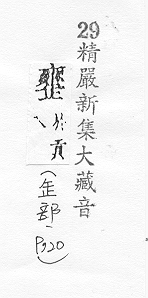 29精嚴新集大藏音
於貢
(歪部、P320)